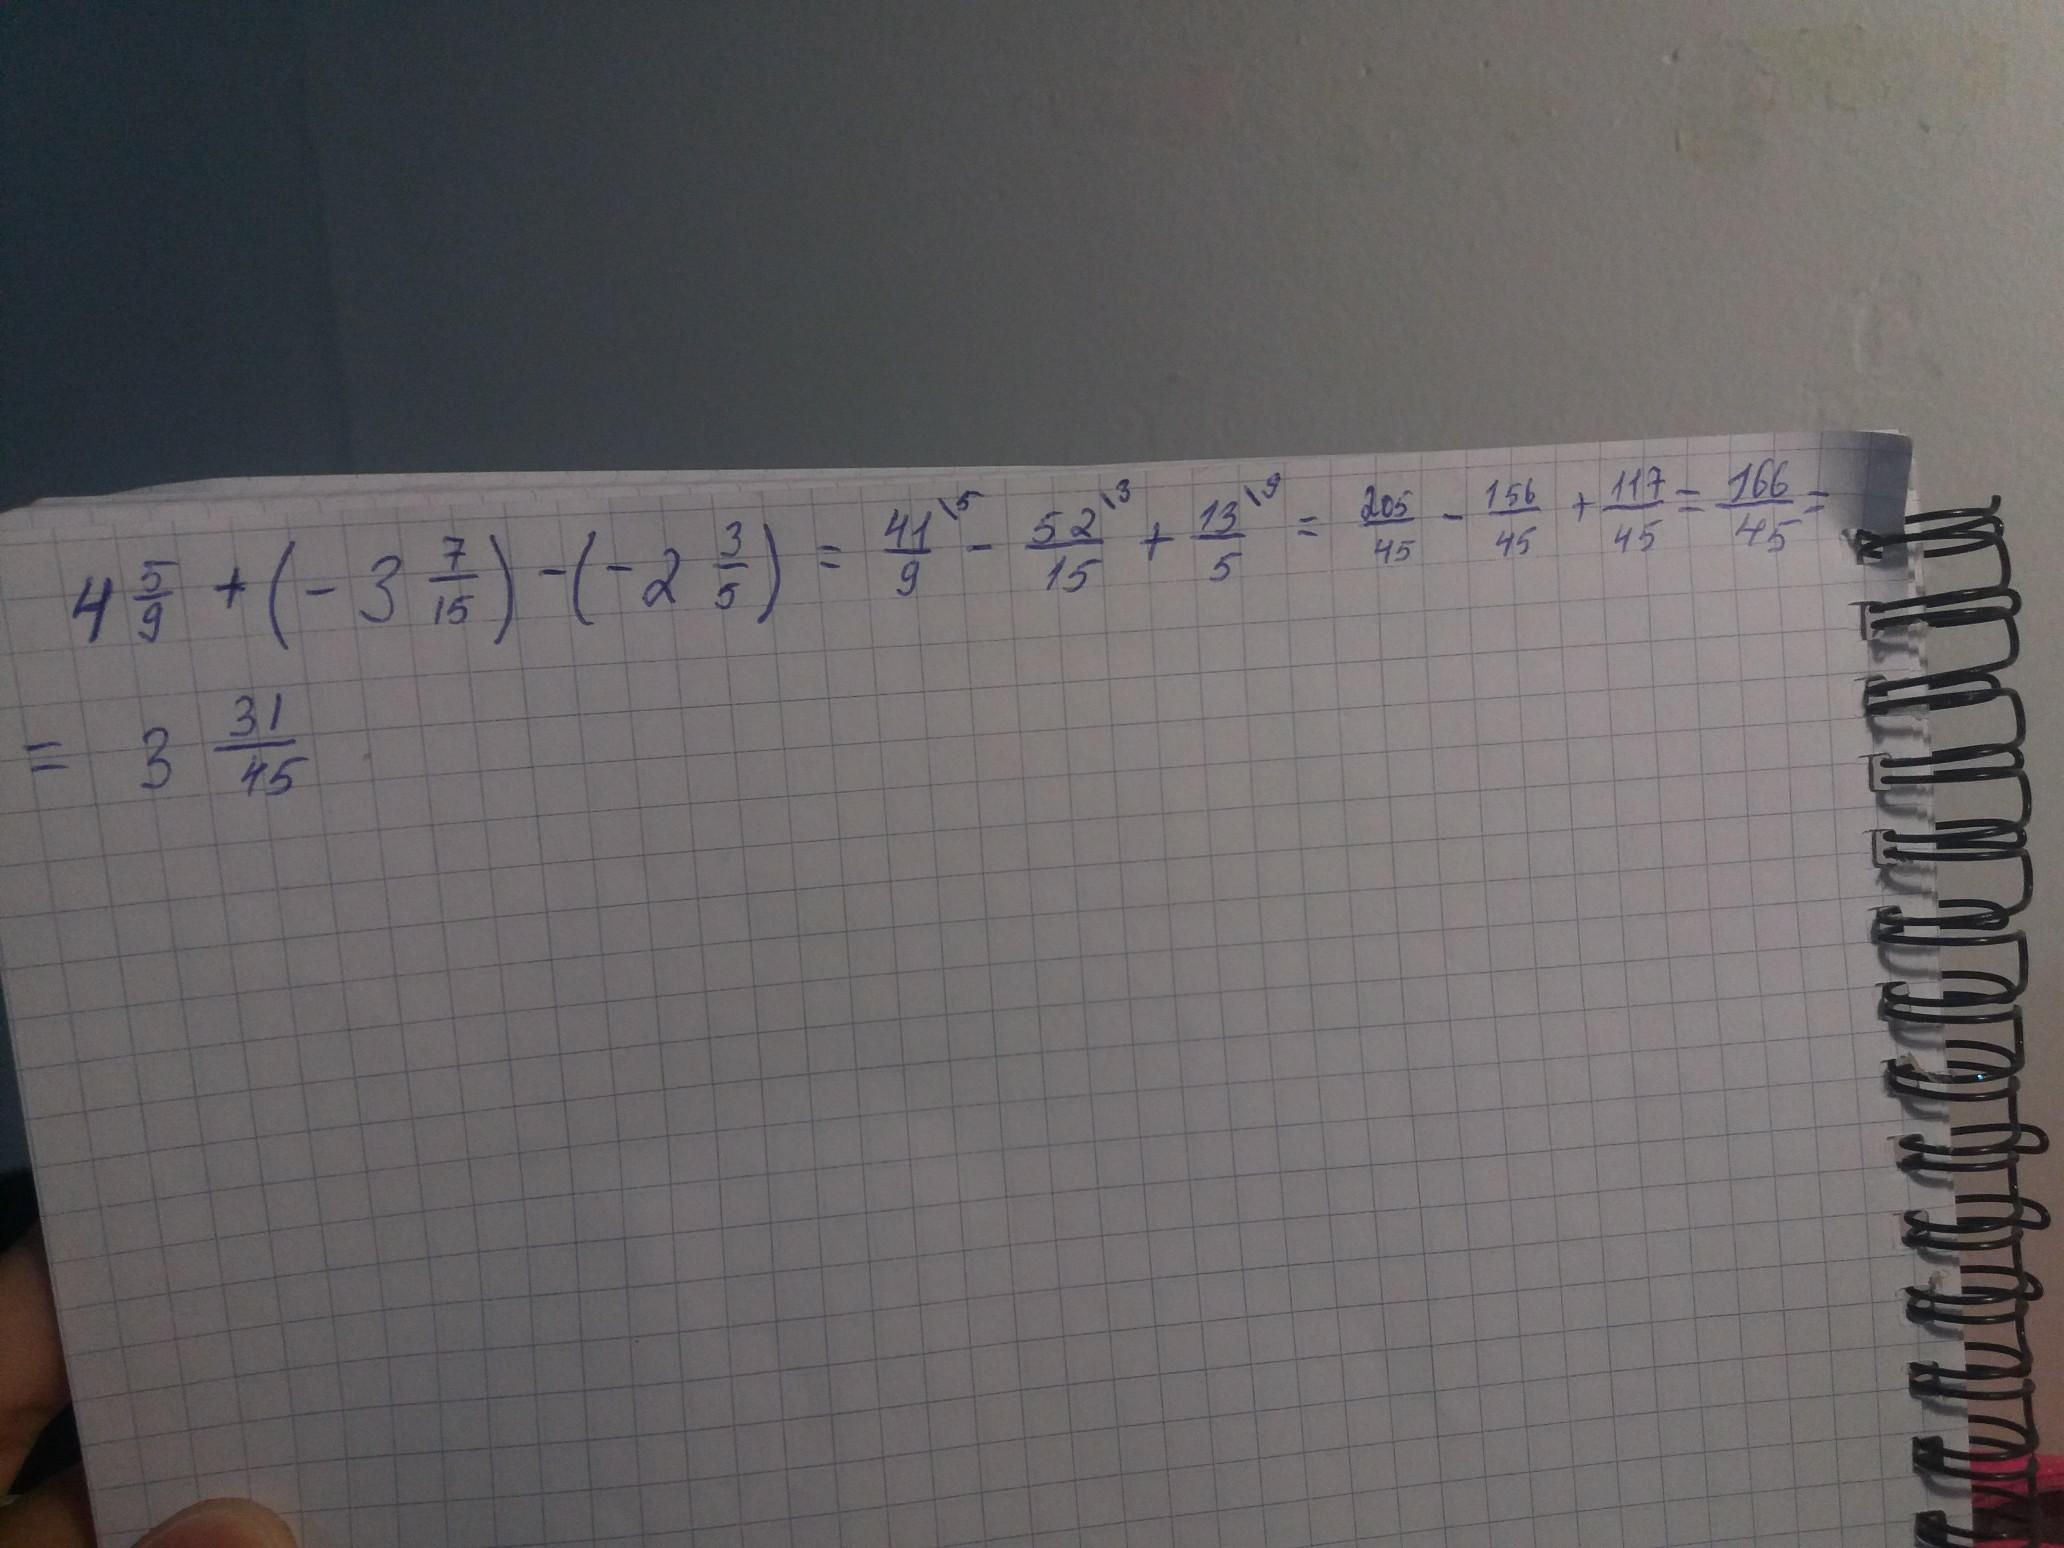 4 5/9 + (- 3 7/15) - (- 2 3/5) = 41/9 \5 - 52/15 \3 + 13/5 \9 = 205/45 - 156/45 + 117/45 = 166/45 =
= 3 31/45